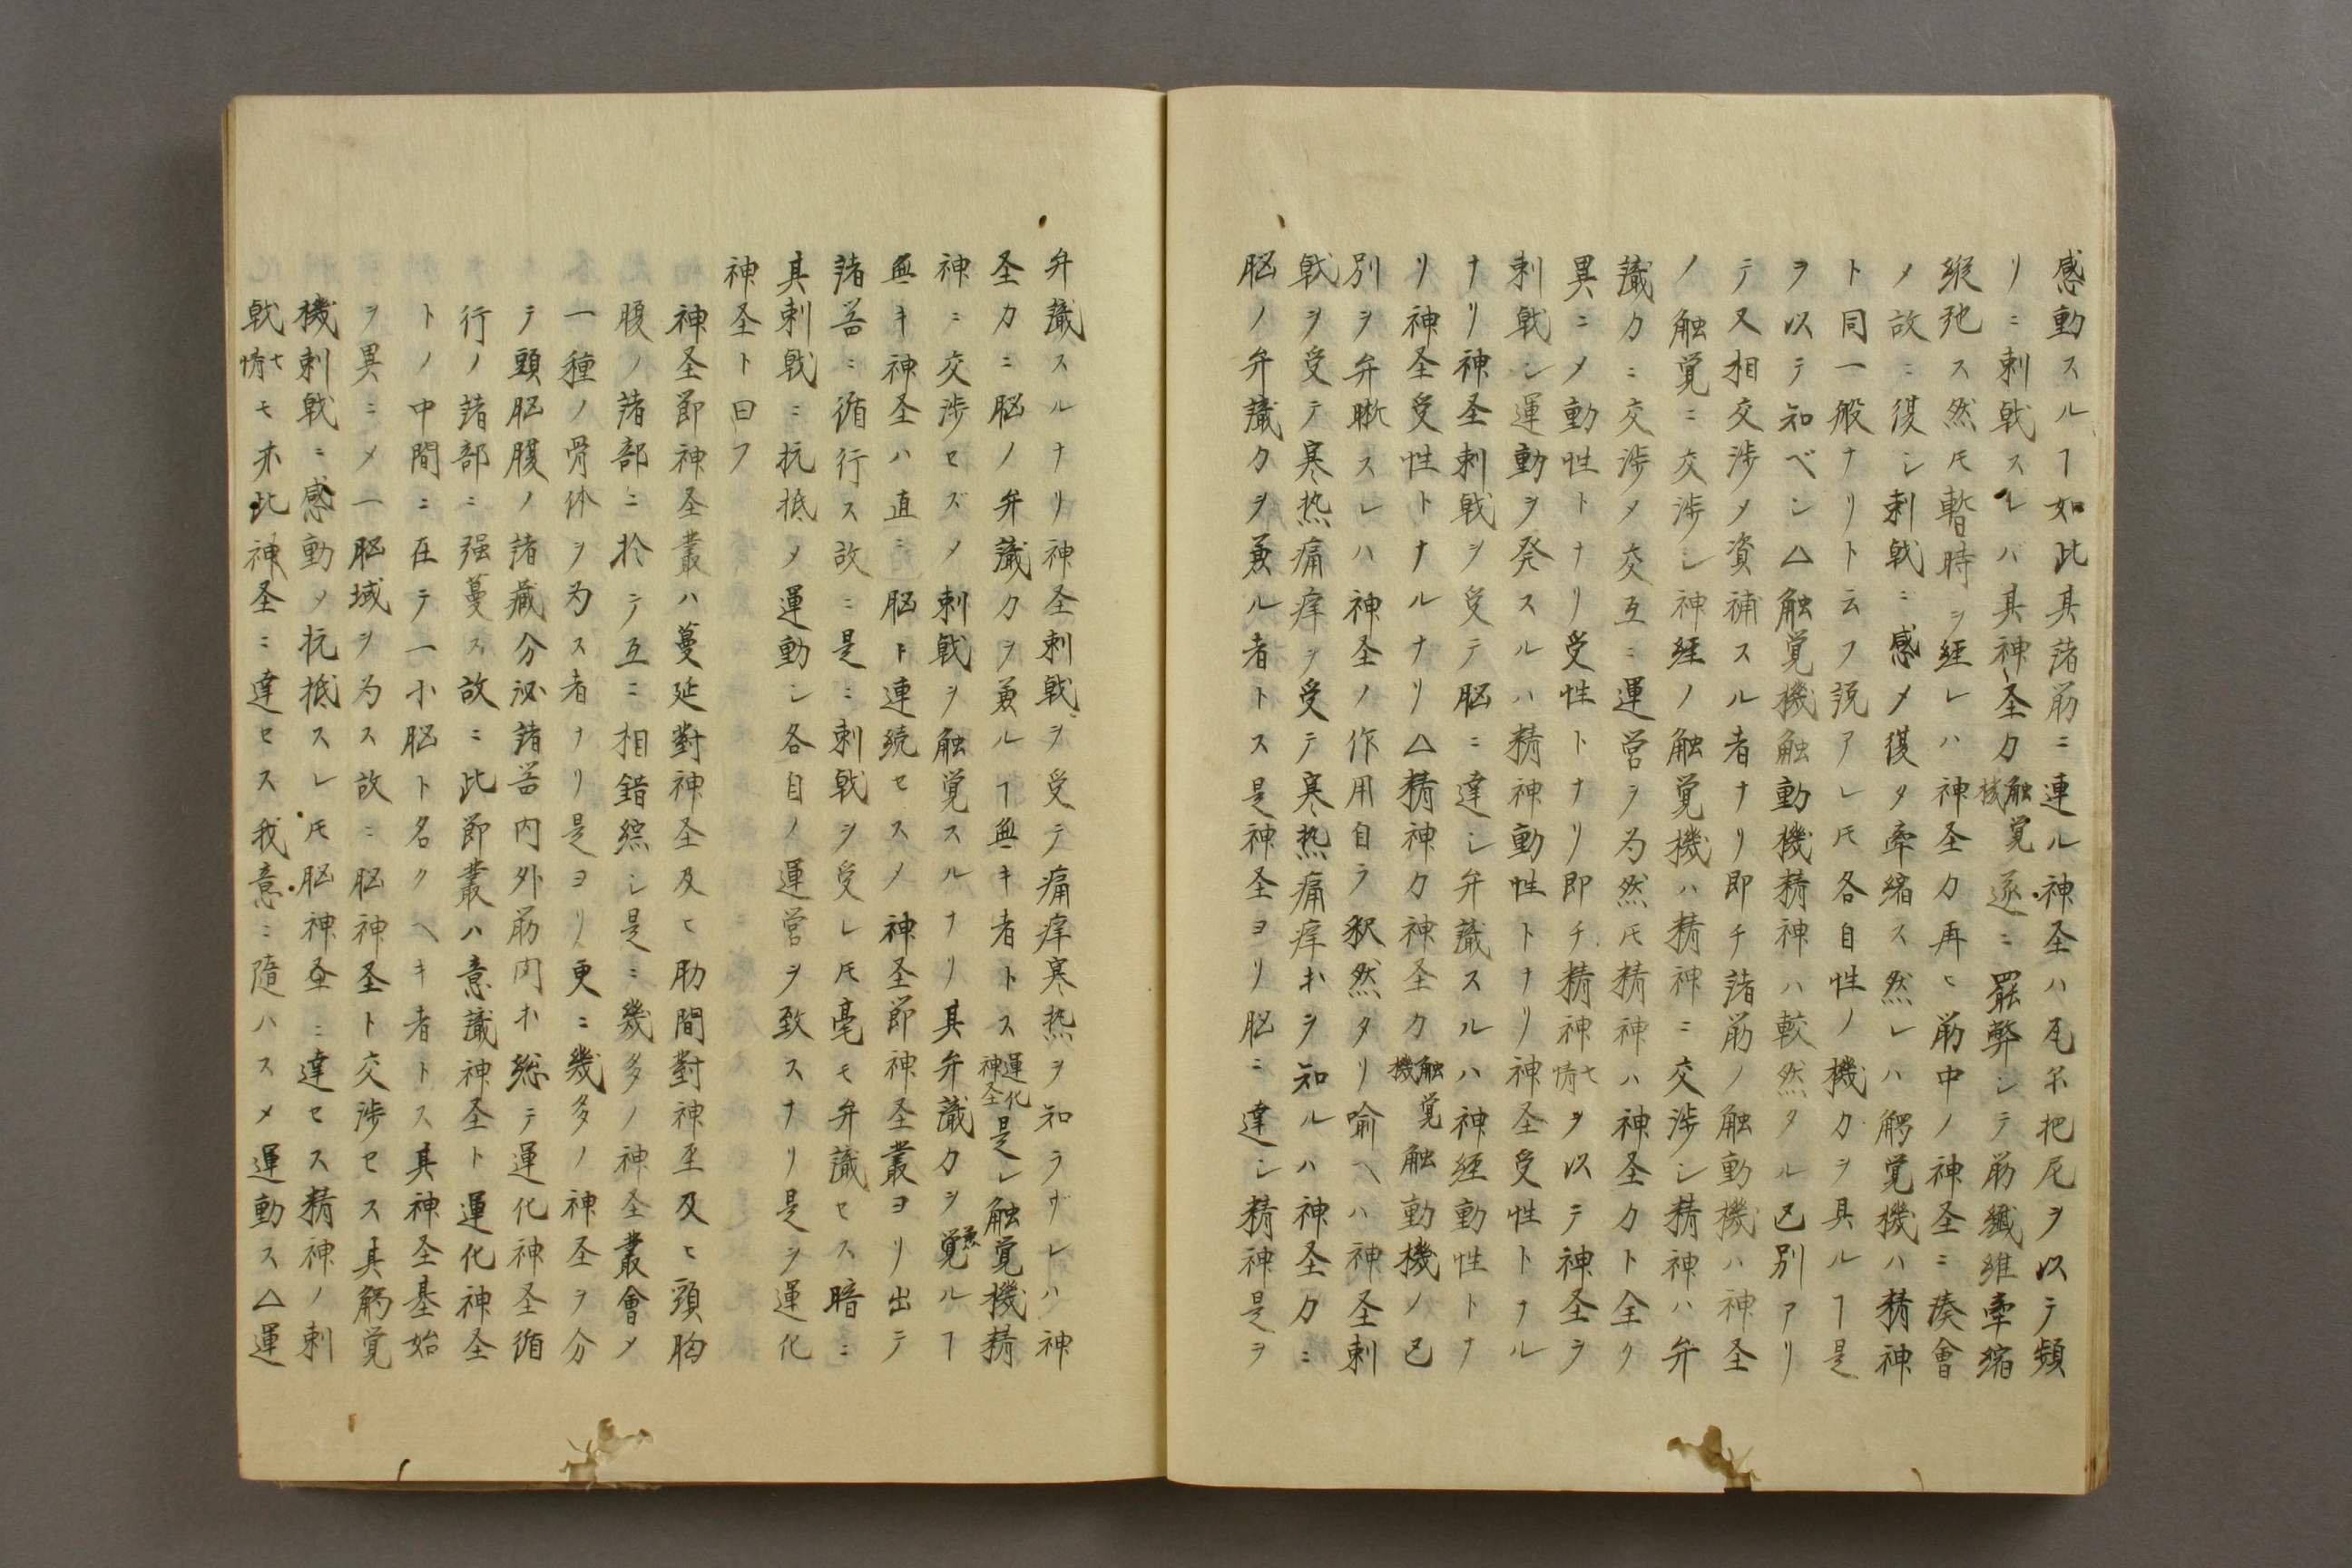 感動スルヿ如此其諸筋ニ連ル神圣ハ瓦尓把尼ヲ以テ頻
リニ刺戟スレバ其神圣力触覚機遂ニ罷弊シテ筋纎維牽縮
縦弛ス然𪜈暫時ヲ経レハ神圣力再ヒ筋中ノ神圣ニ湊會
メ故ニ復シ刺戟ニ感メ復タ牽縮ス然レハ觸覚機ハ精神
ト同一般ナリト云フ説アレ𪜈各自性ノ機力ヲ具ルヿ是
ヲ以テ知ベシ△触覚機触動機精神ハ較然タル区別アリ
テ又相交渉メ資補スル者ナリ即チ諸筋ノ触動機ハ神圣
ノ触覚ニ交渉シ神経ノ触覚機ハ精神ニ交渉シ精神ハ弁
識力ニ交渉メ交互ニ運営ヲ为然𪜈精神ハ神圣力ト全ク
異ニメ動性トナリ受性トナリ即チ精神七情ヲ以テ神圣ヲ
刺戟シ運動ヲ発スルハ精神動性トナリ神圣受性トナル
ナリ神圣刺戟ヲ受テ脳ニ達シ弁識スルハ神経動性トナ
リ神圣受性トナルナリ△精神力神圣力触覚機触動機ノ区
別ヲ弁晰スレハ神圣ノ作用自ラ釈然タリ喩ヘハ神圣刺
戟ヲ受テ寒热痛痒ヲ受テ寒热痛痒ホヲ知ルハ神圣力ニ
脳ノ弁識力ヲ兼ル者トス是神圣ヨリ脳ニ達シ精神是ヲ
弁識スルナリ神圣刺戟ヲ受テ痛痒寒热ヲ知ラザレハ神
圣力ニ脳ノ弁識力ヲ兼ルヿ無キ者トス運化神圣是レ触覚機精
神ニ交渉セズメ刺戟ヲ触覚スルナリ其弁識力ヲ覚ルヿ
無キ神圣ハ直ニ脳ト連続セスメ神圣節神圣叢ヨリ出テ
諸器ニ循行ス故ニ是ニ刺戟ヲ受レ𪜈毫モ弁識セス暗ニ
其刺戟ニ抗抵メ運動シ各自ノ運営ヲ致スナリ是ヲ運化
神圣ト曰フ
神圣節神圣叢ハ蔓延對神圣及ヒ肋間對神圣及ヒ頭胸
腹ノ諸部ニ於テ互ニ相錯綜シ是ニ幾多ノ神圣叢會メ
一種ノ骨体ヲ为ス者ナリ是ヨリ更ニ幾多ノ神圣ヲ分
テ頭脳腹ノ諸藏分泌諸器内外筋肉ホ総テ運化神圣循
行ノ諸部ニ强蔓ス故ニ此節叢ハ意識神圣ト運化神圣
トノ中間ニ在テ一小脳ト名クヘキ者トス其神圣基始
ヲ異ニメ一脳域ヲ为ス故ニ脳神圣ト交渉セス其觸覚
機刺戟ニ感動メ抗抵スレ𪜈脳神圣ニ達セス精神ノ刺
戟七情モ亦此神圣ニ達セス我意ニ隨ハスメ運動ス△運